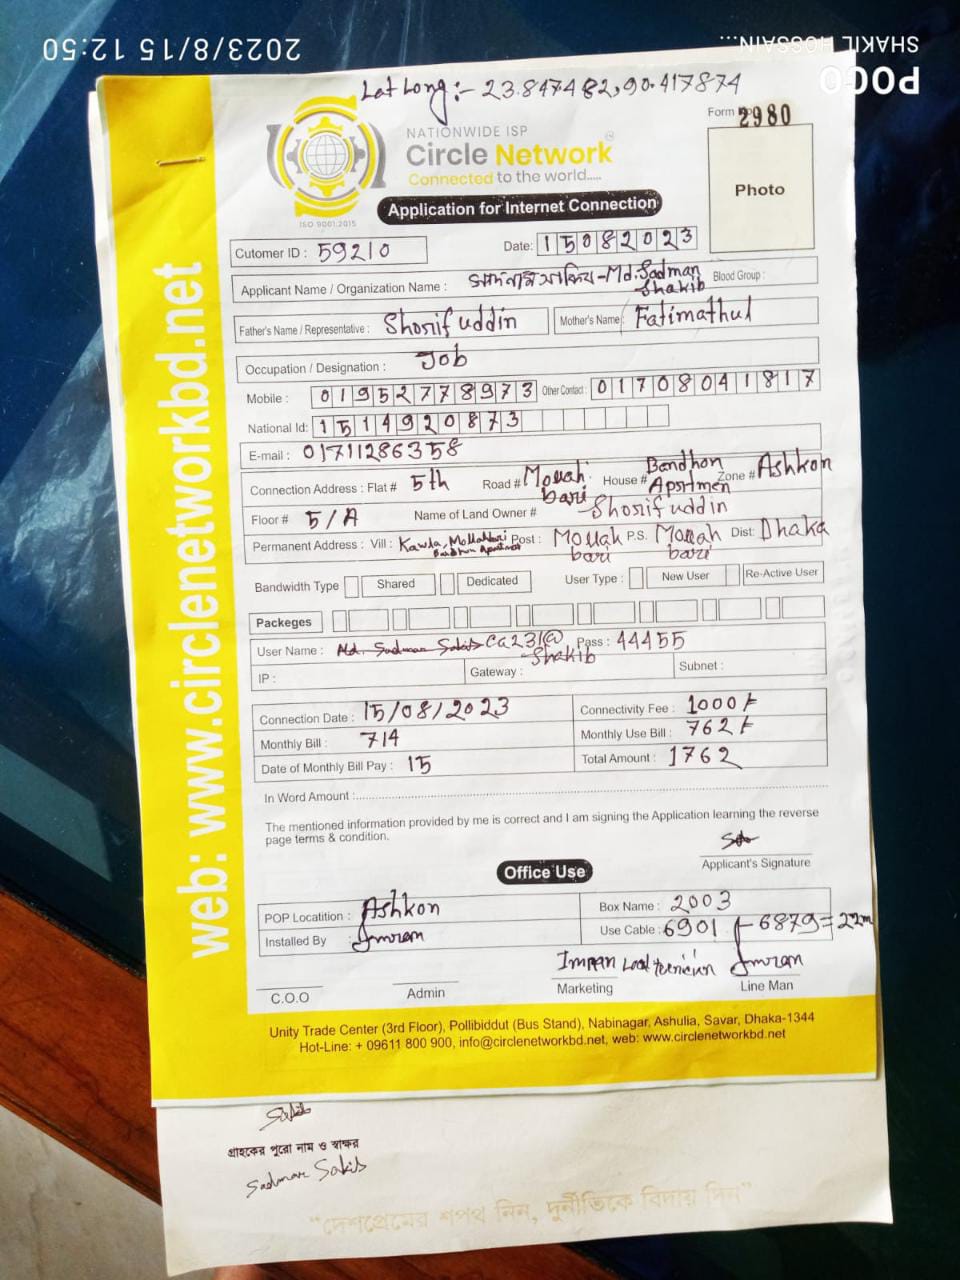 2023/8/15 12:50
SHAKIL HOSSAIN...
POCO
Lat Long :- 23.847482,90.417874
Form No 2980
NATIONWIDE ISP
Circle Network
Connected to the world.....
ISO 9001:2015
Photo
Application for Internet Connection
Cutomer ID : 59210
Date: 15082023
Applicant Name / Organization Name : সাদমান সাকিব-Md. Sadman Shakib Blood Group :
Father's Name / Representative : Shorif uddin Mother's Name : Fatimathul
Occupation / Designation : Job
Mobile : 01952778973 Other Contact : 01708041817
National Id: 1514920873
E-mail : 01711286358
Connection Address : Flat # 5th Road # Mollah bari House # Bandhon Apartmen Zone # Ashkon
Floor # 5/A Name of Land Owner # Shorifuddin
Permanent Address : Vill : Kawla, Mollahbari Bandhon Apartmat Post : Mollah bari P.S. Mollah bari Dist: Dhaka
Bandwidth Type Shared Dedicated User Type : New User Re-Active User
Packeges
User Name : Md. Sadman Sakib CG231@Shakib Pass : 44455
IP : Gateway : Subnet :
Connection Date : 15/08/2023 Connectivity Fee : 1000/-
Monthly Bill : 714 Monthly Use Bill : 762/-
Date of Monthly Bill Pay : 15 Total Amount : 1762
In Word Amount :
The mentioned information provided by me is correct and I am signing the Application learning the reverse
page terms & condition.
Applicant's Signature
Office Use
POP Locatition : Ashkon Box Name : 2003
Installed By Imran Use Cable : 6901 - 6879 = 22m
Imran Imran
C.O.O Admin Marketing Line Man
Unity Trade Center (3rd Floor), Pollibiddut (Bus Stand), Nabinagar, Ashulia, Savar, Dhaka-1344
Hot-Line: + 09611 800 900, info@circlenetworkbd.net, web: www.circlenetworkbd.net
web: www.circlenetworkbd.net
Sakib
গ্রাহকের পুরো নাম ও স্বাক্ষর
Sadman Sakib
“দেশপ্রেমের শপথ নিন, দুর্নীতিকে বিদায় দিন”